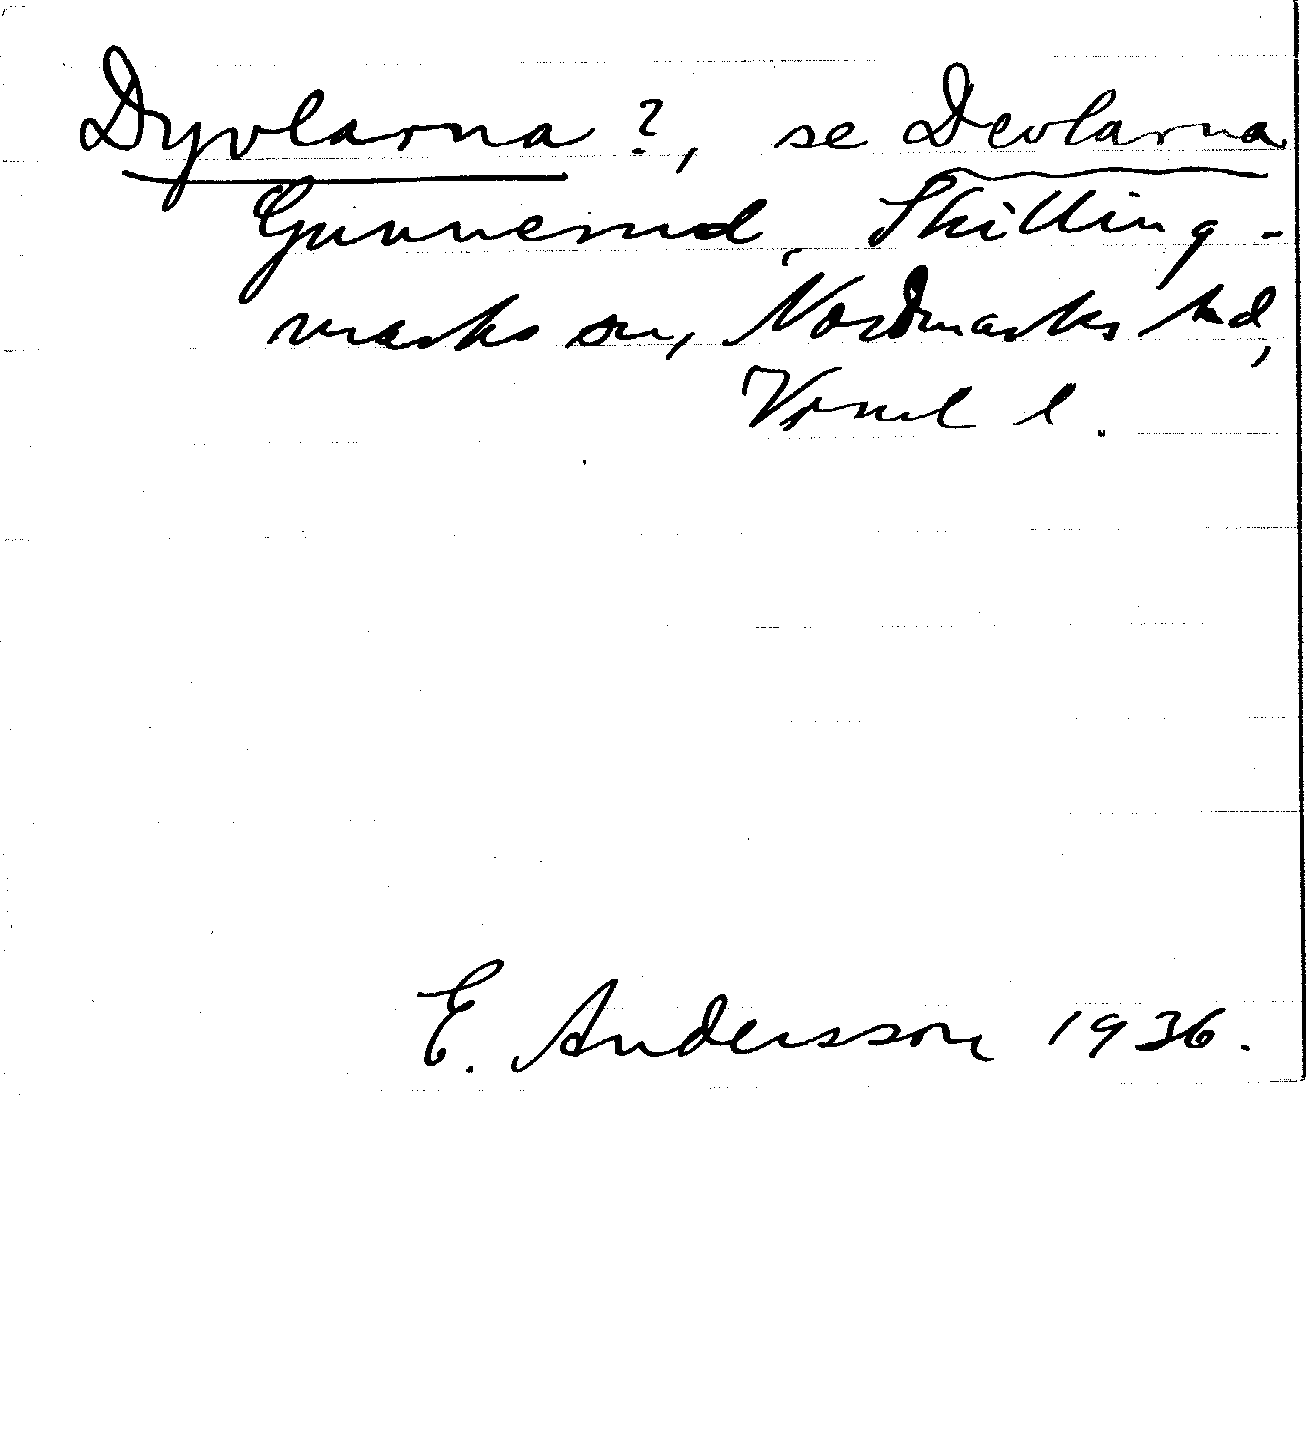 Dyvlarna ?, se Devlarna
Gunnerud, Skilling-
marks sn, Nordmarks hd,
Vrml l.
E. Andersson 1936.